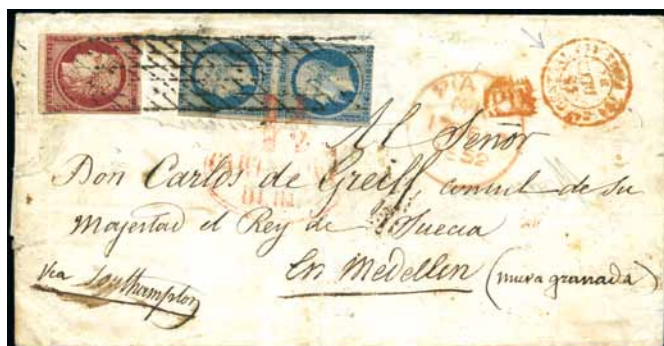 Al Señor
Don Carlos de Greiff, consul de su
Majestad el Rey de Suecia
En Medellin (nueva granada)
via Southampton